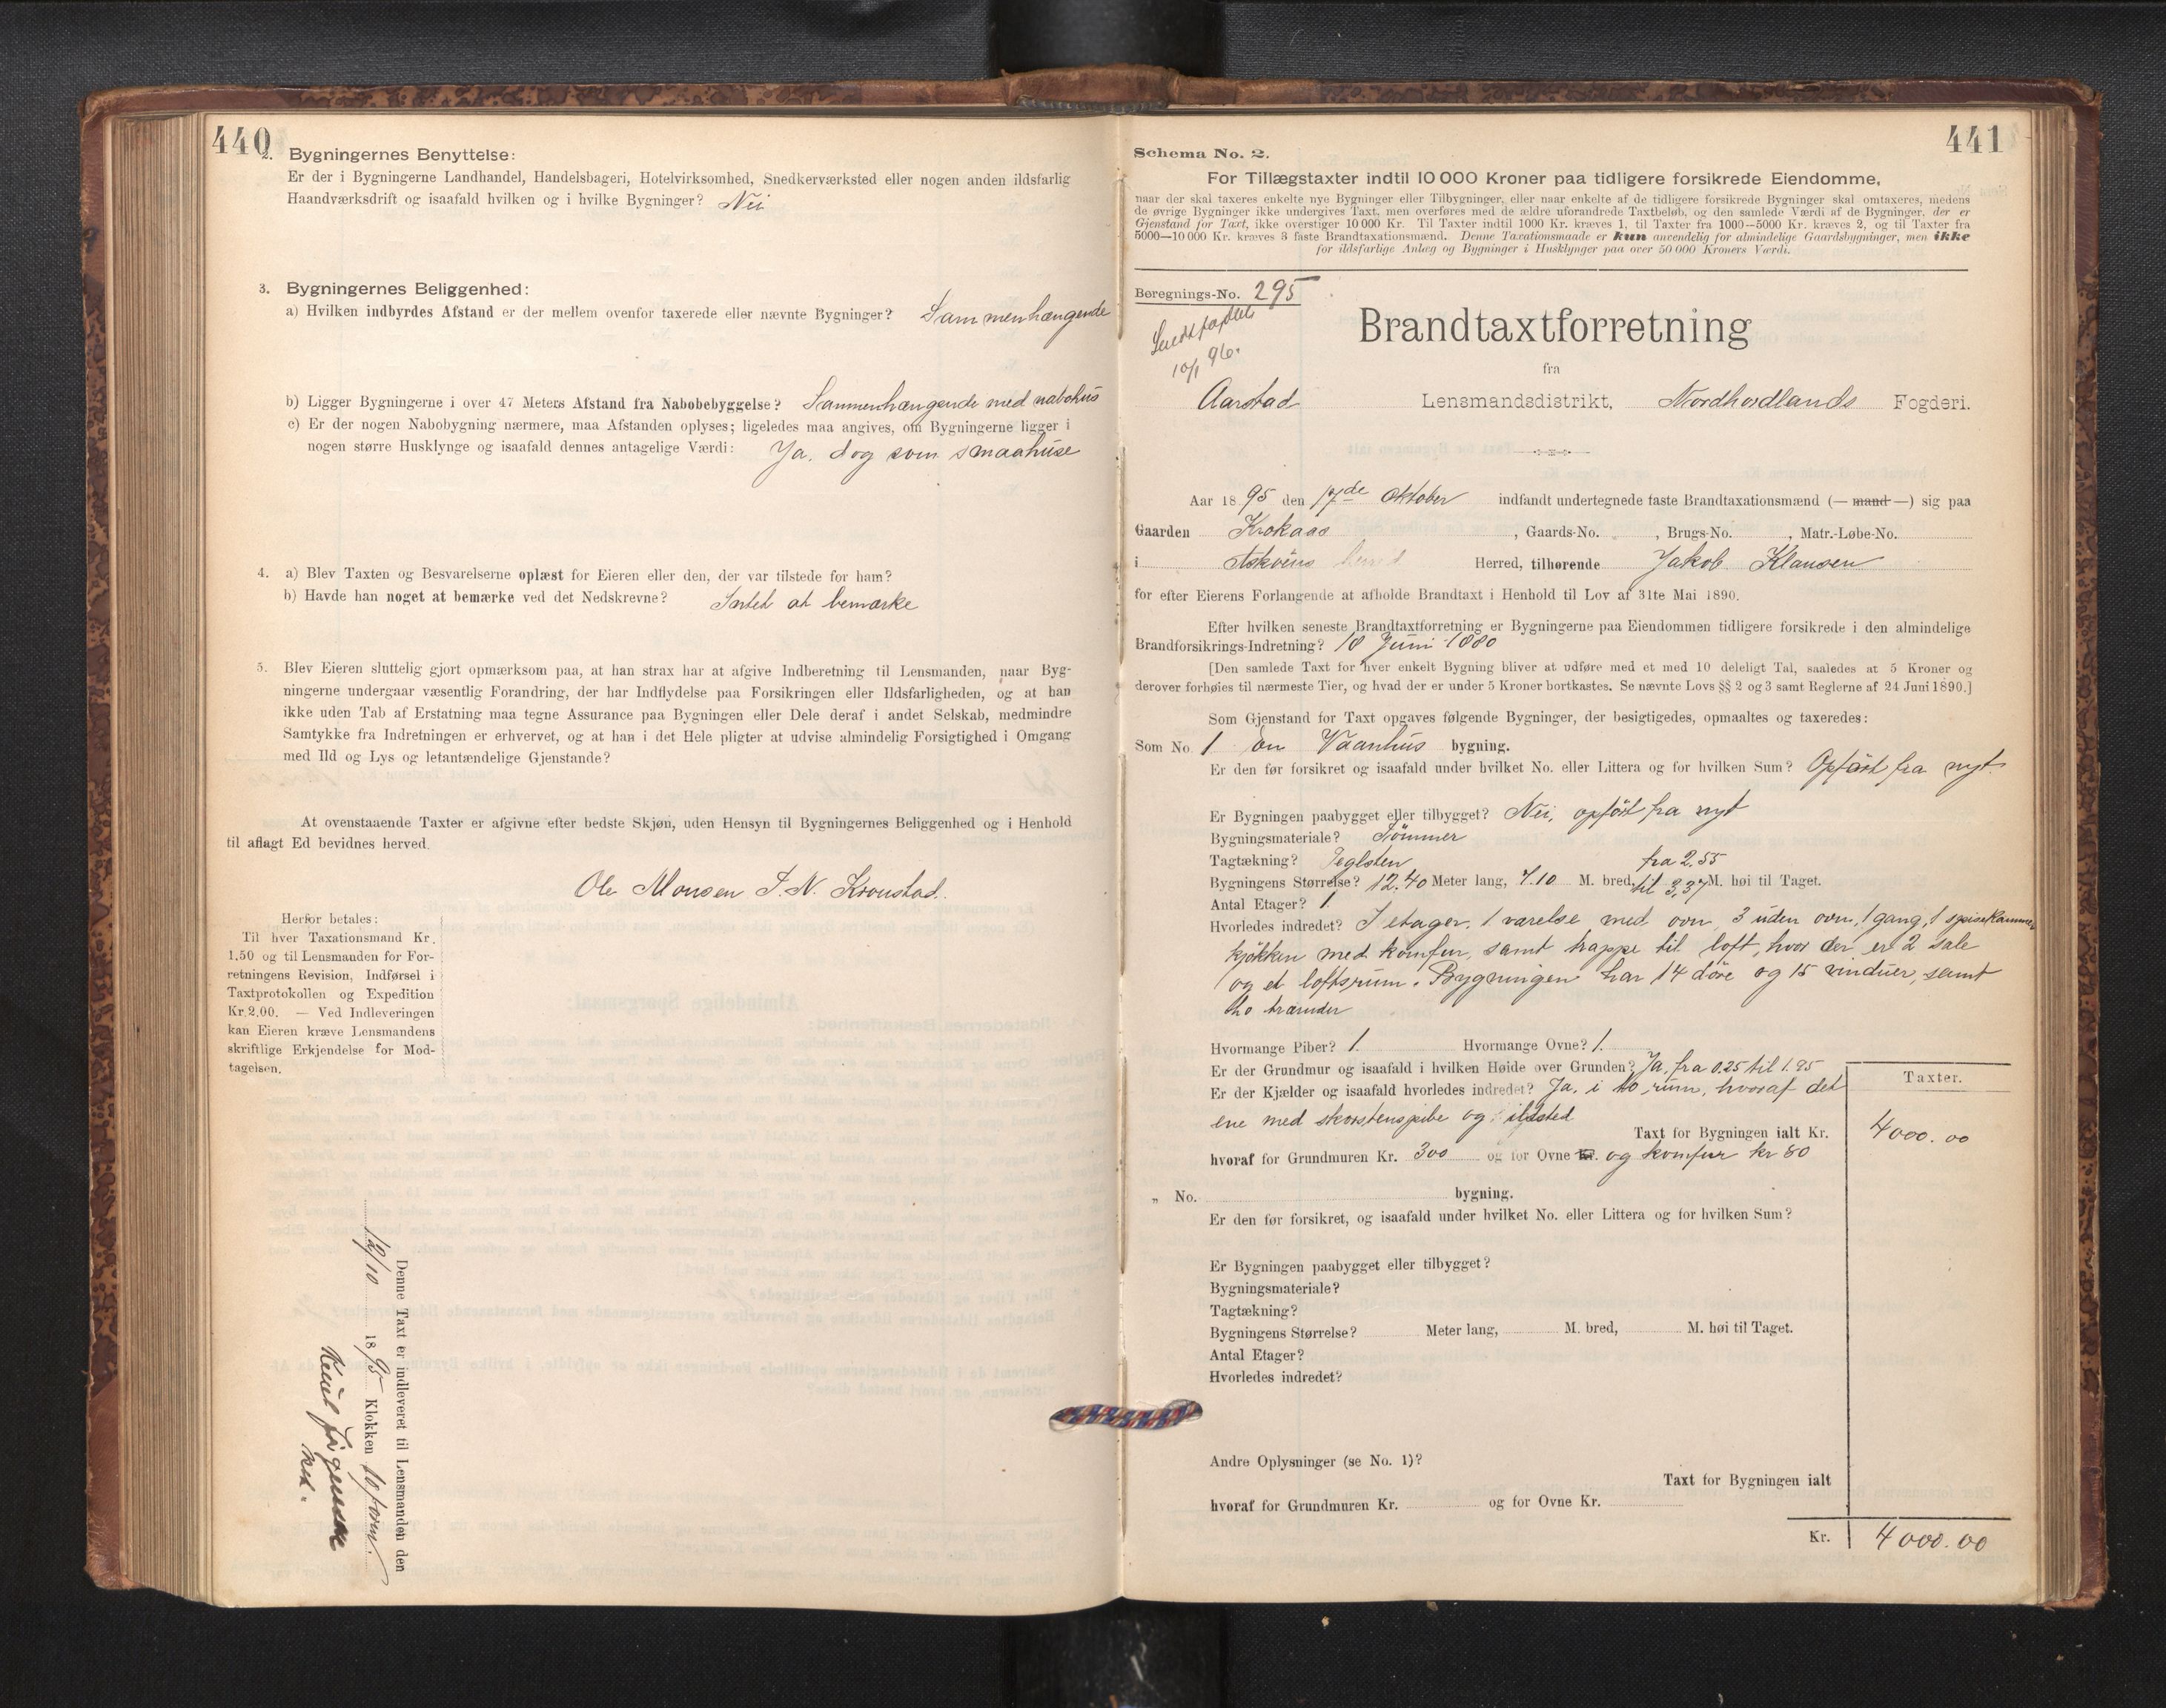 440
2. Bygningernes Benyttelse:
Er der i Bygningerne Landhandel, Handelsbageri, Hotelvirksomhed, Snedkerværksted eller nogen anden ildsfarlig
Haandværksdrift og isaafald hvilken og i hvilke Bygninger? Nei
3. Bygningernes Beliggenhed:
a) Hvilken indbyrdes Afstand er der mellem ovenfor taxerede eller nævnte Bygninger? Sammenhængende
b) Ligger Bygningerne i over 47 Meters Afstand fra Nabobebyggelse? Sammenhængende med nabohus
c) Er der nogen Nabobygning nærmere, maa Afstanden oplyses; ligeledes maa angives, om Bygningerne ligger i
nogen større Husklynge og isaafald dennes antagelige Værdi: Ja, dog som smaahuse
4. a) Blev Taxten og Besvarelserne oplæst for Eieren eller den, der var tilstede for ham?
b) Havde han noget at bemærke ved det Nedskrevne? Intet at bemærke
5. Blev Eieren sluttelig gjort opmærksom paa, at han strax har at afgive Indberetning til Lensmanden, naar Byg-
ningerne undergaar væsentlig Forandring, der har Indflydelse paa Forsikringen eller Ildsfarligheden, og at han
ikke uden Tab af Erstatning maa tegne Assurance paa Bygningen eller Dele deraf i andet Selskab, medmindre
Samtykke fra Indretningen er erhvervet, og at han i det Hele pligter at udvise almindelig Forsigtighed i Omgang
med Ild og Lys og letantændelige Gjenstande?
At ovenstaaende Taxter er afgivne efter bedste Skjøn, uden Hensyn til Bygningernes Beliggenhed og i Henhold
til aflagt Ed bevidnes herved.
Ole Monsen J. N. Kronstad.
Herfor betales:
Til hver Taxationsmand Kr.
1,50 og til Lensmanden for For-
retningens Revision, Indførsel i
Taxtprotokollen og Expedition
Kr. 2,00. — Ved Indleveringen
kan Eieren kræve Lensmandens
skriftlige Erkjendelse for Mod-
tagelsen.
Denne Taxt er indleveret til Lensmanden den
19/10 1895 Klokken 10 form.
441
Schema No. 2.
For Tillægstaxter indtil 10 000 Kroner paa tidligere forsikrede Eiendomme,
naar der skal taxeres enkelte nye Bygninger eller Tilbygninger, eller naar enkelte af de tidligere forsikrede Bygninger skal omtaxeres, medens
de øvrige Bygninger ikke undergives Taxt, men overføres med de ældre uforandrede Taxtbeløb, og den samlede Værdi af de Bygninger, der er
Gjenstand for Taxt, ikke overstiger 10 000 Kr. Til Taxter indtil 1000 Kr. kræves 1, til Taxter fra 1000—5000 Kr. kræves 2, og til Taxter fra
5000—10 000 Kr. kræves 3 faste Brandtaxationsmænd. Denne Taxationsmaade er kun anvendelig for almindelige Gaardsbygninger, men ikke
for ildsfarlige Anlæg og Bygninger i Husklynger paa over 50 000 Kroners Værdi.
Beregnings-No. 295
10/1 96.
Brandtaxtforretning
fra
Aarstad Lensmandsdistrikt, Nordhordlands Fogderi.
Aar 1895 den 17de Oktober indfandt undertegnede faste Brandtaxationsmænd (— mand —) sig paa
Gaarden Krokaas , Gaards-No. , Brugs-No. , Matr.-Løbe-No.
i Askøens Herred, tilhørende Jakob Klausen
for efter Eierens Forlangende at afholde Brandtaxt i Henhold til Lov af 31te Mai 1890.
Efter hvilken seneste Brandtaxtforretning er Bygningerne paa Eiendommen tidligere forsikrede i den almindelige
Brandforsikrings-Indretning? 18 Juni 1880
[Den samlede Taxt for hver enkelt Bygning bliver at udføre med et med 10 deleligt Tal, saaledes at 5 Kroner og
derover forhøies til nærmeste Tier, og hvad der er under 5 Kroner bortkastes. Se nævnte Lovs §§ 2 og 3 samt Reglerne af 24 Juni 1890.]
Som Gjenstand for Taxt opgaves følgende Bygninger, der besigtigedes, opmaaltes og taxeredes:
Som No. 1 en Vaanhus bygning.
Er den før forsikret og isaafald under hvilket No. eller Littera og for hvilken Sum? Opført fra nyt.
Er Bygningen paabygget eller tilbygget? Nei, opført fra nyt
Bygningsmateriale? Tömmer
Tagtækning? Teglsten fra 2.55
Bygningens Størrelse? 12.40 Meter lang, 7.10 M. bred, til 3,37 M. høi til Taget.
Antal Etager? 1
Hvorledes indredet? I etager, 1 værelse med ovn, 3 uden ovn, 1 gang, 1 spisekammer
kjøkken med komfur, samt trappe til loft, hvor der er 2 sale
og et loftsrum. Bygningen har 14 døre og 15 vinduer, samt
to
Hvormange Piber? 1. Hvormange Ovne? 1.
Er der Grundmur og isaafald i hvilken Høide over Grunden? Ja, fra 0.25 til 1.95
Er der Kjælder og isaafald hvorledes indredet? Ja, i to rum, hvoraf det
ene med skorstenspibe og ildsted
Taxter.
Taxt for Bygningen ialt Kr. 4000.00
hvoraf for Grundmuren Kr. 300 og for Ovne Kr. og komfur kr 80
„ No. bygning.
Er den før forsikret, og isaafald under hvilket No. eller Littera og for hvilken Sum?
Er Bygningen paabygget eller tilbygget?
Bygningsmateriale?
Tagtækning?
Bygningens Størrelse? Meter lang, M. bred, M. høi til Taget.
Antal Etager?
Hvorledes indredet?
Andre Oplysninger (se No. 1)?
Taxt for Bygningen ialt
hvoraf for Grundmuren Kr. og for Ovne Kr.
Kr. 4000.00